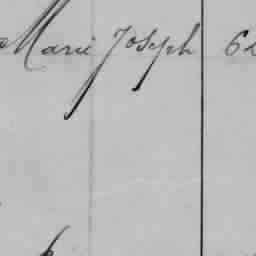 Marie Joseph 6